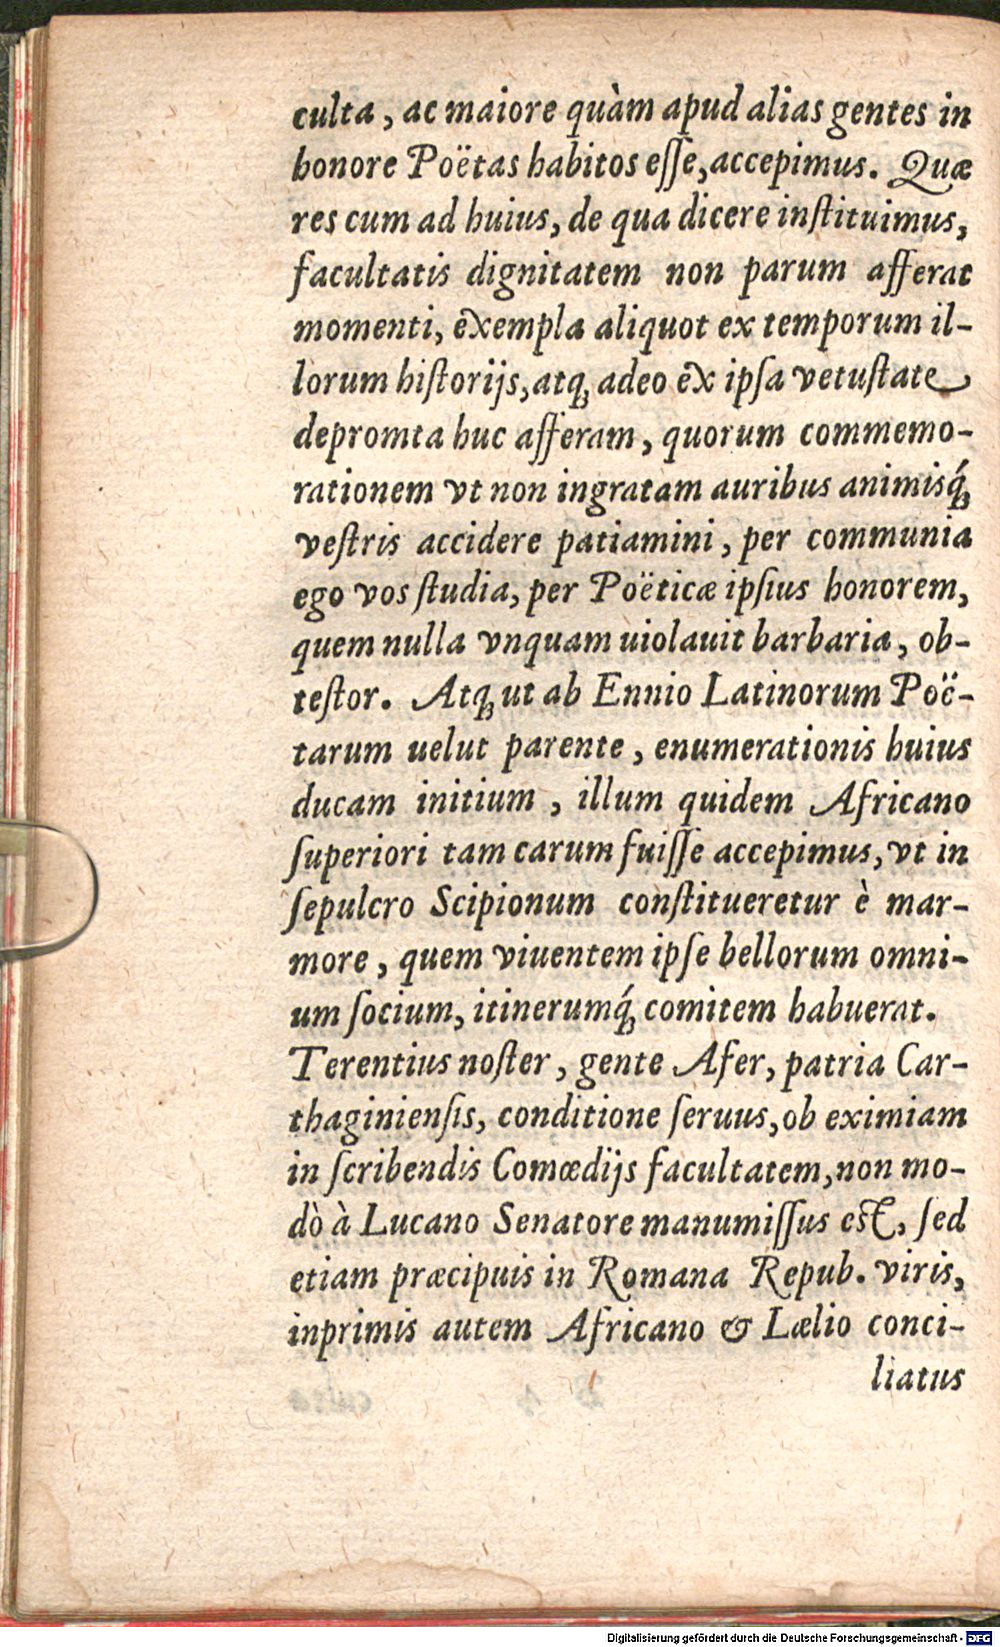 culta, ac maiore quàm apud alias gentes in
honore Poëtas habitos eſſe, accepimus. Quæ
res cum ad huius, de qua dicere inſtituimus,
facultatis dignitatem non parum afferat
momenti, exempla aliquot ex temporum il-
lorum hiſtorijs, atq; adeo ex ipſa vetuſtate
depromta huc afferam, quorum commemo-
rationem vt non ingratam auribus animisq́;
veſtris accidere patiamini, per communia
ego vos ſtudia, per Poëticæ ipſius honorem,
quem nulla vnquam uiolauit barbaria, ob-
teſtor. Atq; ut ab Ennio Latinorum Poë-
tarum uelut parente, enumerationis huius
ducam initium, illum quidem Africano
ſuperiori tam carum fuiſſe accepimus, vt in
ſepulcro Scipionum conſtitueretur è mar-
more, quem viuentem ipſe bellorum omni-
um ſocium, itinerumq́; comitem habuerat.
Terentius noſter, gente Afer, patria Car-
thaginienſis, conditione ſeruus, ob eximiam
in ſcribendis Comœdijs facultatem, non mo-
dò à Lucano Senatore manumiſſus eſt, ſed
etiam præcipuis in Romana Repub. viris,
inprimis autem Africano & Lælio conci-
liatus
Digitalisierung gefördert durch die Deutsche Forschungsgemeinschaft - DFG